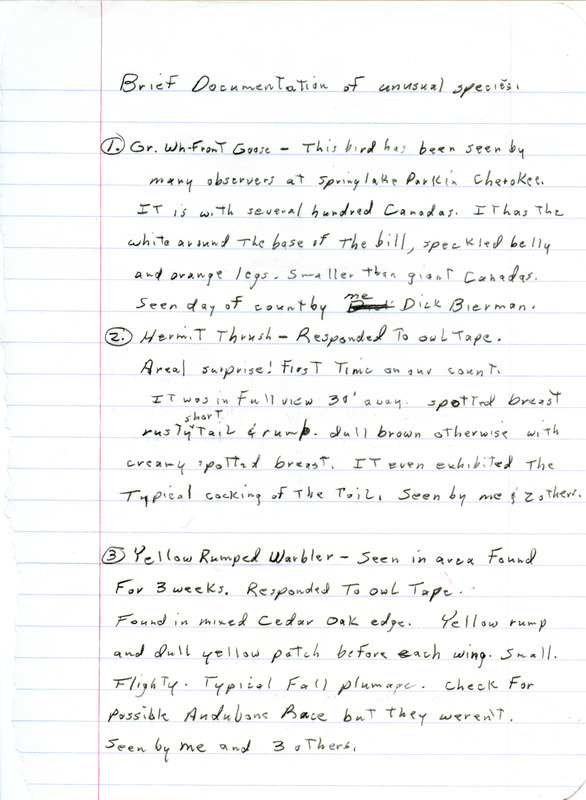 Brief Documentation of unusual species.
1. Gr. Wh-Front Goose - This bird has been seen by
many observers at Spring lake Park in Cherokee.
It is with several hundred Canadas. It has the
white around the base of the bill, speckled belly
and orange legs. Smaller than giant Canadas.
Seen day of count by me Dick Bierman.
2. Hermit Thrush - Responded to owl Tape.
A real surprise! First Time on our count.
It was in full view 30' away. spotted breast
rusty short tail & rump. dull brown otherwise with
creamy spotted breast. It even exhibited the
Typical cocking of the Tail. Seen by me & 2 others.
3 Yellow Rumped Warbler - Seen in area Found
For 3 weeks. Responded To owl Tape.
Found in mixed Cedar Oak edge. Yellow rump
and dull yellow patch before each wing. Small.
Flighty. Typical Fall plumage. Check For
possible Audubons Race but they weren't.
Seen by me and 3 others.